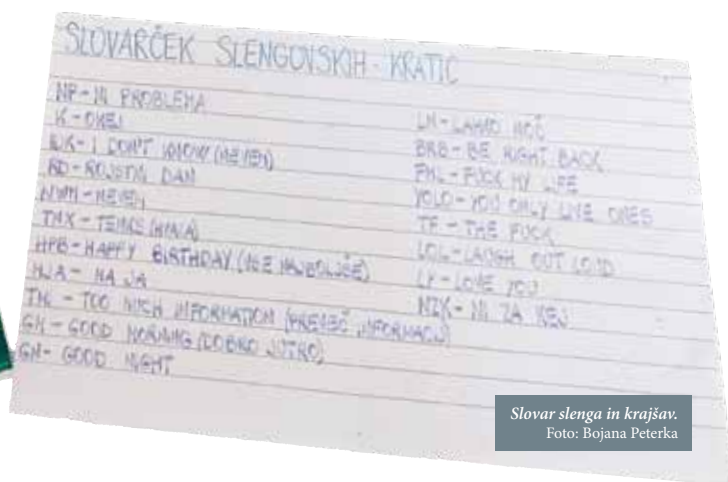 SLOVARČEK SLENGOVSKIH KRATIC
NP - NI PROBLEMA
K - OKEJ
IDK - I DON'T KNOW (NEVEM)
RD - ROJSTNI DAN
NVM - NEVEM
THX - TENKS (HVALA)
HPB - HAPPY BIRTHDAY (VSE NAJBOLJŠE)
NJA - NA JA
TMI - TOO MICH INFORMATION (PREVEČ INFORMACIJ)
GM - GOOD MORNING (DOBRO JUTRO)
GN - GOOD NIGHT
LN - LAHKO NOČ
BRB - BE RIGHT BACK
FML - FUCK MY LIFE
YOLO - YOU ONLY LIVE ONES
TF - THE FUCK
LOL - LAUGH OUT LOUD
LY - LOVE YOU
NZK - NI ZA KEJ
Slovar slenga in krajšav.
Foto: Bojana Peterka